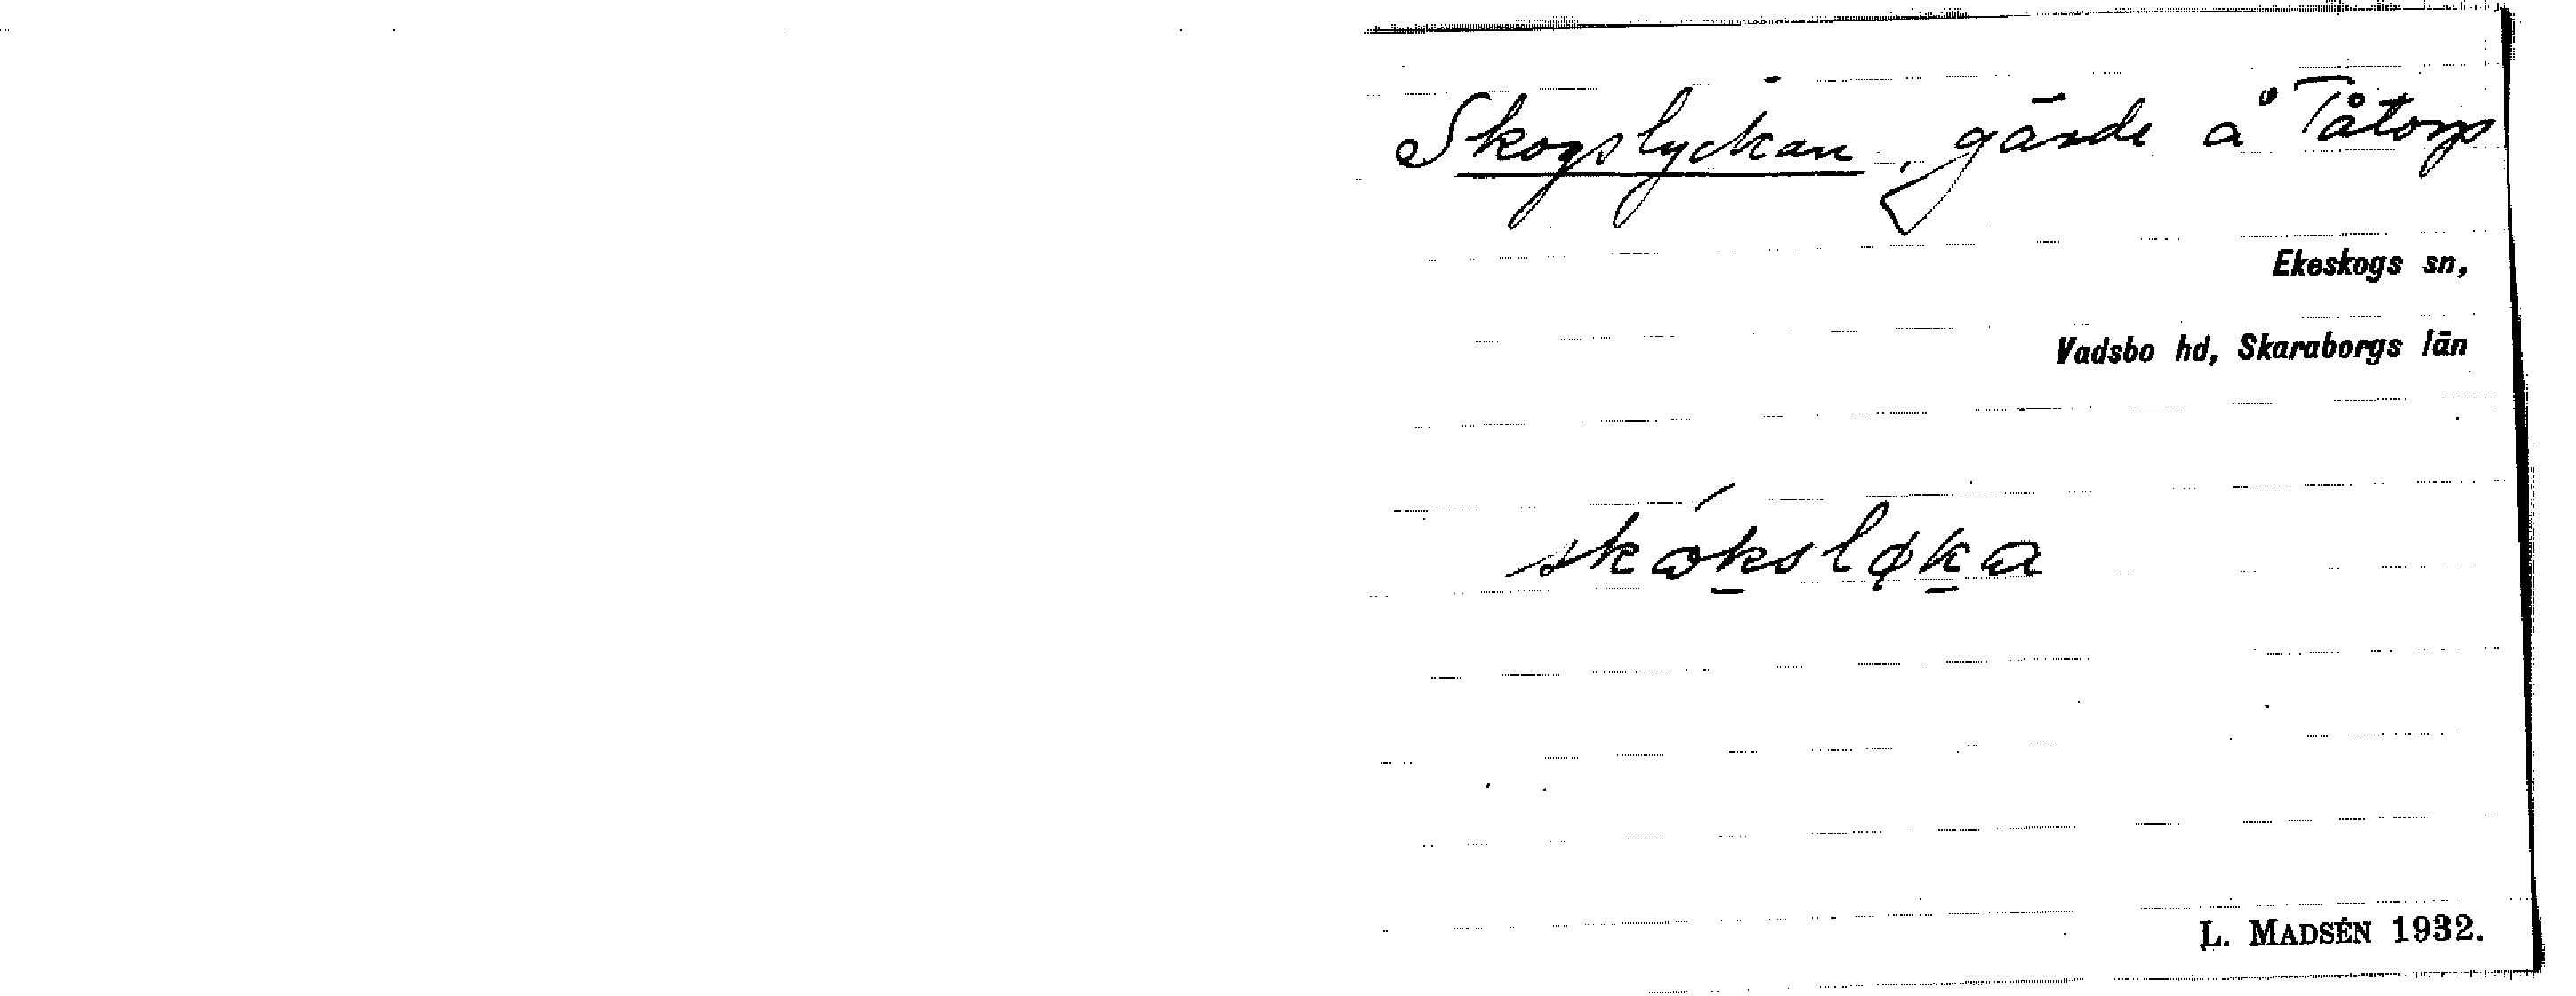 Skogslyckan, gärde å Tåtorp
Ekeskogs sn,
Vadsbo hd, Skaraborgs län
skóksløka
L. MADSÉN 1932.